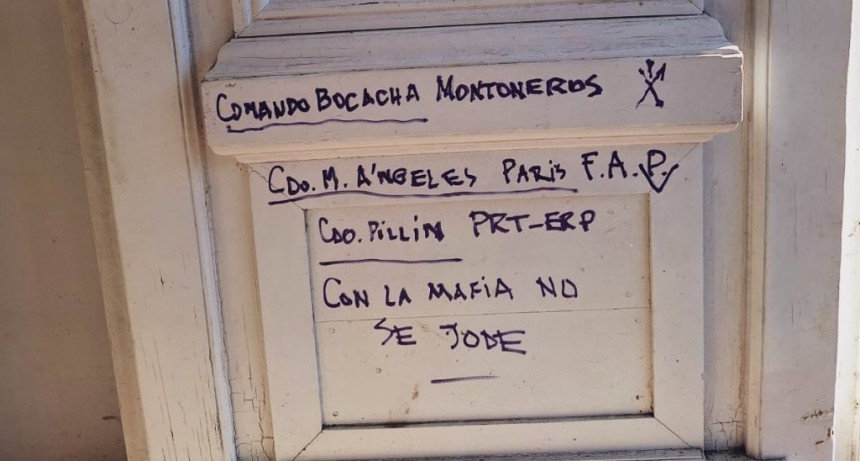 COMANDO BOCACHA MONTONEROS
CDO. M. A'NGELES PARIS F.A.P.
CDO. PILLIN PRT-ERP
CON LA MAFIA NO
SE JODE